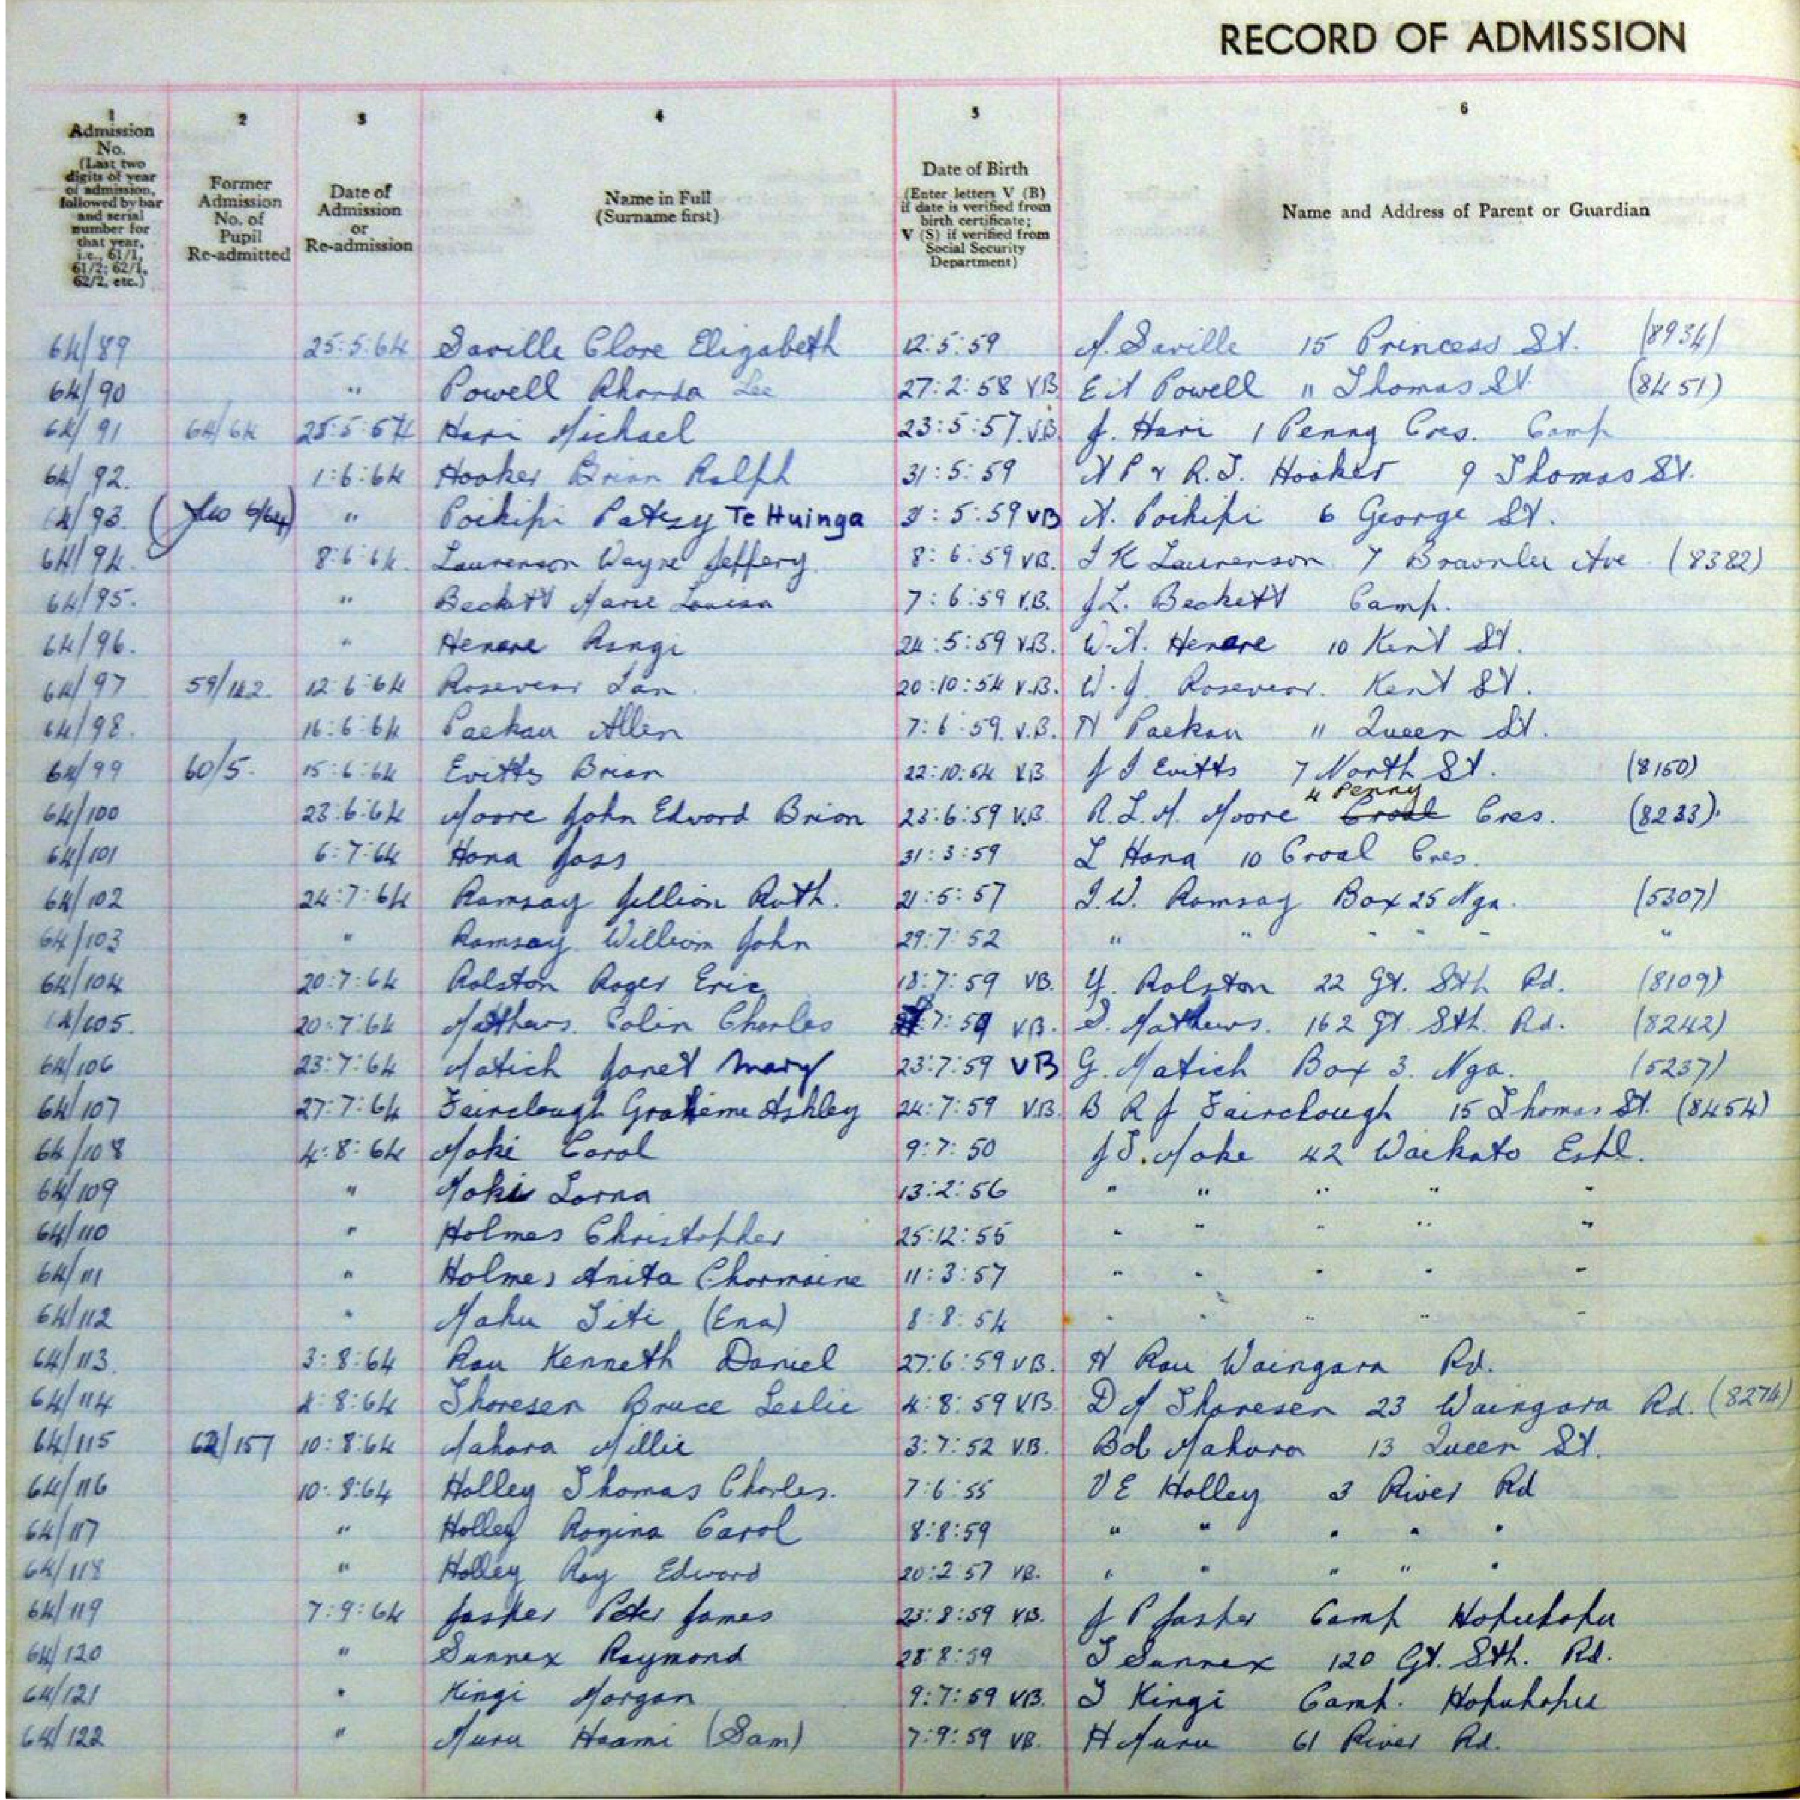 RECORD OF ADMISSION
1 2 3 4 5 6
Admission No. (Last two digits of year of admission, followed by bar and serial number for that year, i.e., 61/1, 61/2; 62/1, 62/2, etc.)
Former Admission No. of Pupil Re-admitted
Date of Admission or Re-admission
Name in Full (Surname first)
Date of Birth (Enter letters V (B) if date is verified from birth certificate; V (S) if verified from Social Security Department)
Name and Address of Parent or Guardian
64/89 25:5:64 Saville Clare Elizabeth 12:5:59 A. Saville 15 Princess St. (8934)
64/90 " Powell Rhonda Lee 27:2:58 VB E A Powell 11 Thomas St. (8451)
64/91 64/64 25:5:64 Hari Michael 23:5:57 V.B. J. Hari 1 Penny Cres. Camp
64/92. 1:6:64 Hooker Brian Ralph 31:5:59 N P & R.J. Hooker 9 Thomas St.
64/93. " Poihipi Patsy Te Huinga 31:5:59 VB N. Poihipi 6 George St.
64/94. 8:6:64. Laurenson Wayne Jeffery. 8:6:59 VB. I K Laurenson 7 Brownlee Ave. (8382)
64/95. " Beckett Marie Louisa 7:6:59 V.B. J L. Beckett Camp.
64/96. " Henare Rangi 24:5:59 V.B. W.N. Henare 10 Kent St.
64/97 59/142. 12:6:64 Rosevear Ian. 20:10:54 V.B. W.J. Rosevear. Kent St.
64/98. 16:6:64 Paekau Allen 7:6:59. V.B. H Paekau 11 Queen St.
64/99 60/5. 15:6:64 Evitts Brian 22:10:54 VB J I Evitts 7 North St. (8150)
64/100 23:6:64 Moore John Edward Brian 23:6:59 V.B R.L.M. Moore 4 Penny Croal Cres. (8233).
64/101 6:7:64 Hona Joss 31:3:59 L Hona 10 Croal Cres.
64/102 24:7:64 Ramsay Jillian Ruth. 21:5:57 I.W. Ramsay Box 25 Nga. (5307)
64/103 " Ramsay William John 29:7:52 " " " " " "
64/104 20:7:64 Ralston Roger Eric 18:7:59 VB. Y. Ralston 22 Gt. Sth Rd. (8109)
64/105. 20:7:64 Mathews. Colin Charles 7:59 VB. S. Mathews. 162 Gt. Sth. Rd. (8242)
64/106 23:7:64 Matich Janet Mary 23:7:59 VB G. Matich Box 3. Nga. (5237)
64/107 27:7:64 Fairclough Graheme Ashley 24:7:59 V.B. B R J Fairclough 15 Thomas St. (8454)
64/108 4:8:64 Moke Carol 9:7:50 J T. Moke 42 Waikato Espl.
64/109 " Moke Lorna 13:2:56 " " " " "
64/110 " Holmes Christopher 25:12:55 " " " " "
64/111 " Holmes Anita Charmaine 11:3:57 " " " " "
64/112 " Mahu Titi (Ena) 8:8:54 " " " " "
64/113. 3:8:64 Rau Kenneth Daniel 27:6:59 VB. H Rau Waingara Rd.
64/114 4:8:64 Thoresen Bruce Leslie 4:8:59 VB. D A Thoresen 23 Waingara Rd. (8274)
64/115 62/157 10:8:64 Mahara Millie 3:7:52 V.B. Bob Mahara 13 Queen St.
64/116 10:8:64 Holley Thomas Charles. 7:6:55 V E Holley 3 River Rd
64/117 " Holley Rogina Carol 8:8:59 " " " " "
64/118 " Holley Roy Edward 20:2:57 VB. " " " " "
64/119 7:9:64 Jasper Peter James 23:8:59 VB. J P Jasper Camp Hopuhopu
64/120 " Sunnex Raymond 28:8:59 T Sunnex 120 Gt. Sth. Rd.
64/121 " Kingi Morgan 9:7:59 VB. T Kingi Camp. Hopuhopu
64/122 " Muru Haami (Sam) 7:9:59 VB. H Muru 61 River Rd.